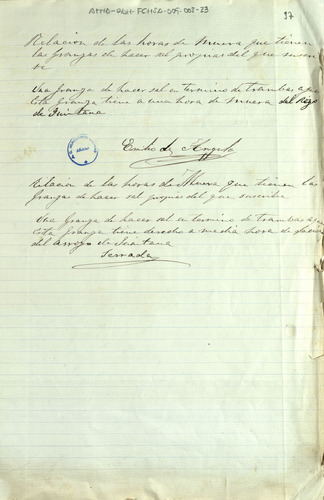 AMHD-PAH-FCHSA-005-008-23
97
Relacion de las horas de Muera que tienen
las granjas de hacer sal propias del que suscri
ve
Una granja de hacer sal en termino de trambas
esta granja tiene a una hora de muera del Rayo
de Quintana
Emilio de Angulo
Relacion de las horas de Muera que tienen las
granjas de hacer sal propias del que suscribe
Una granja de hacer sal en termino de trambas
esta granja tiene derecho a media hora de
del arroyo de Suentana
Serrada